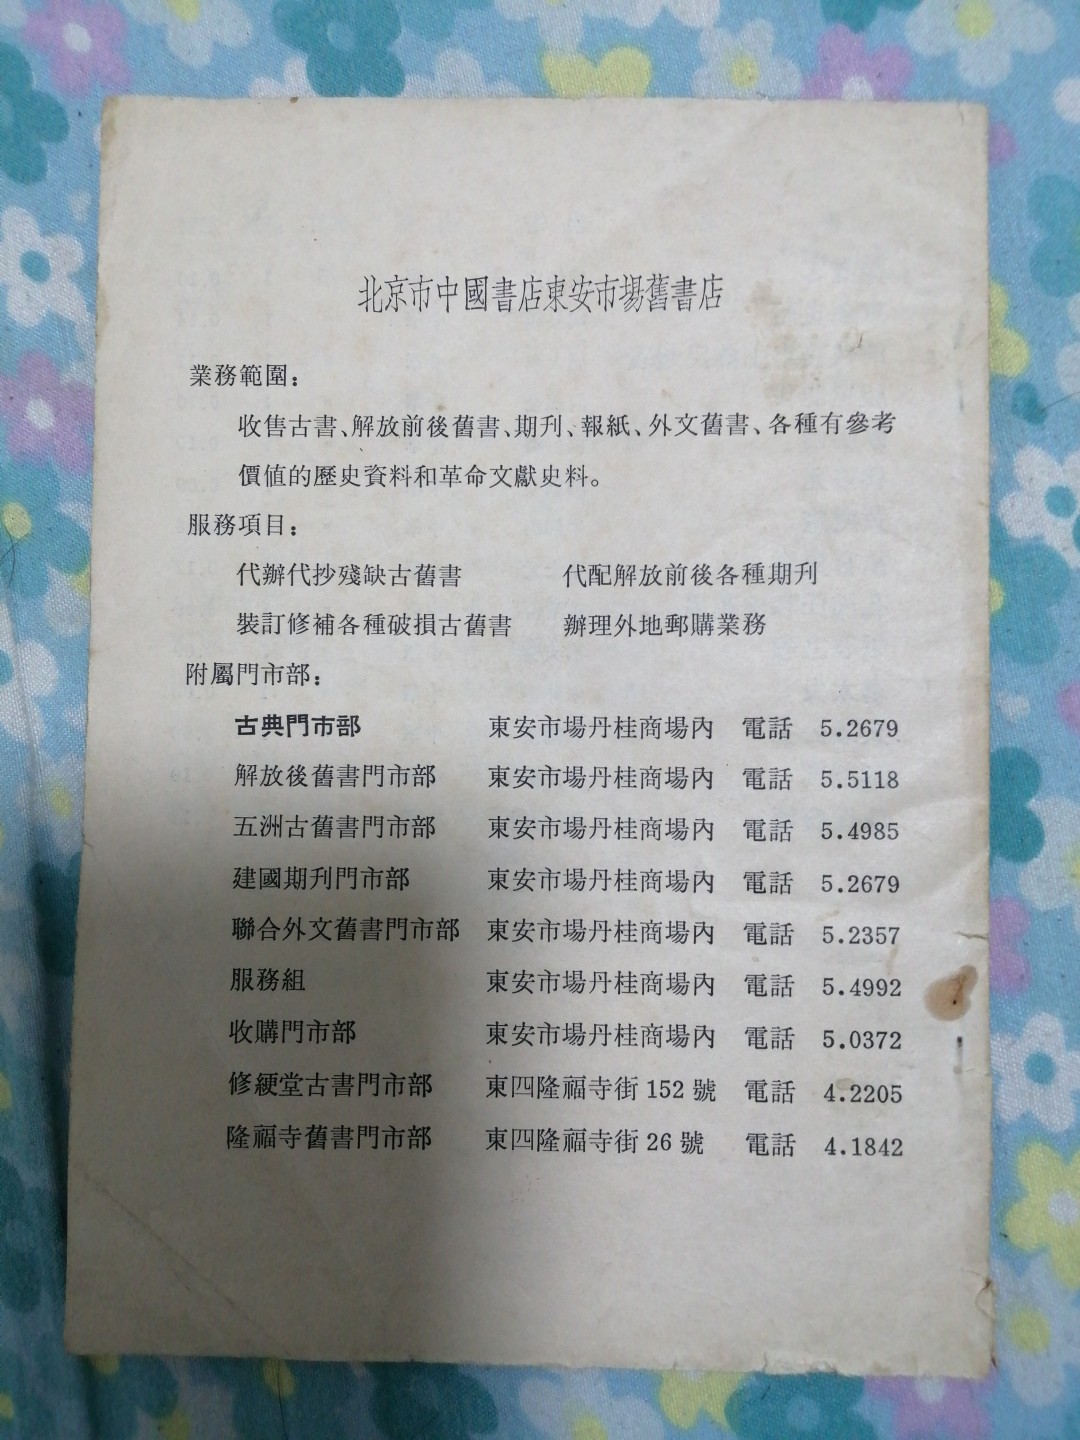 北京市中國書店東安市場舊書店
業務範圍：
收售古書、解放前後舊書、期刊、報紙、外文舊書、各種有參考
價值的歷史資料和革命文獻史料。
服務項目：
代辦代抄殘缺古舊書 代配解放前後各種期刊
裝訂修補各種破損古舊書 辦理外地郵購業務
附屬門市部：
古典門市部 東安市場丹桂商場內 電話 5.2679
解放後舊書門市部 東安市場丹桂商場內 電話 5.5118
五洲古舊書門市部 東安市場丹桂商場內 電話 5.4985
建國期刊門市部 東安市場丹桂商場內 電話 5.2679
聯合外文舊書門市部 東安市場丹桂商場內 電話 5.2357
服務組 東安市場丹桂商場內 電話 5.4992
收購門市部 東安市場丹桂商場內 電話 5.0372
修綆堂古書門市部 東四隆福寺街 152 號 電話 4.2205
隆福寺舊書門市部 東四隆福寺街 26 號 電話 4.1842